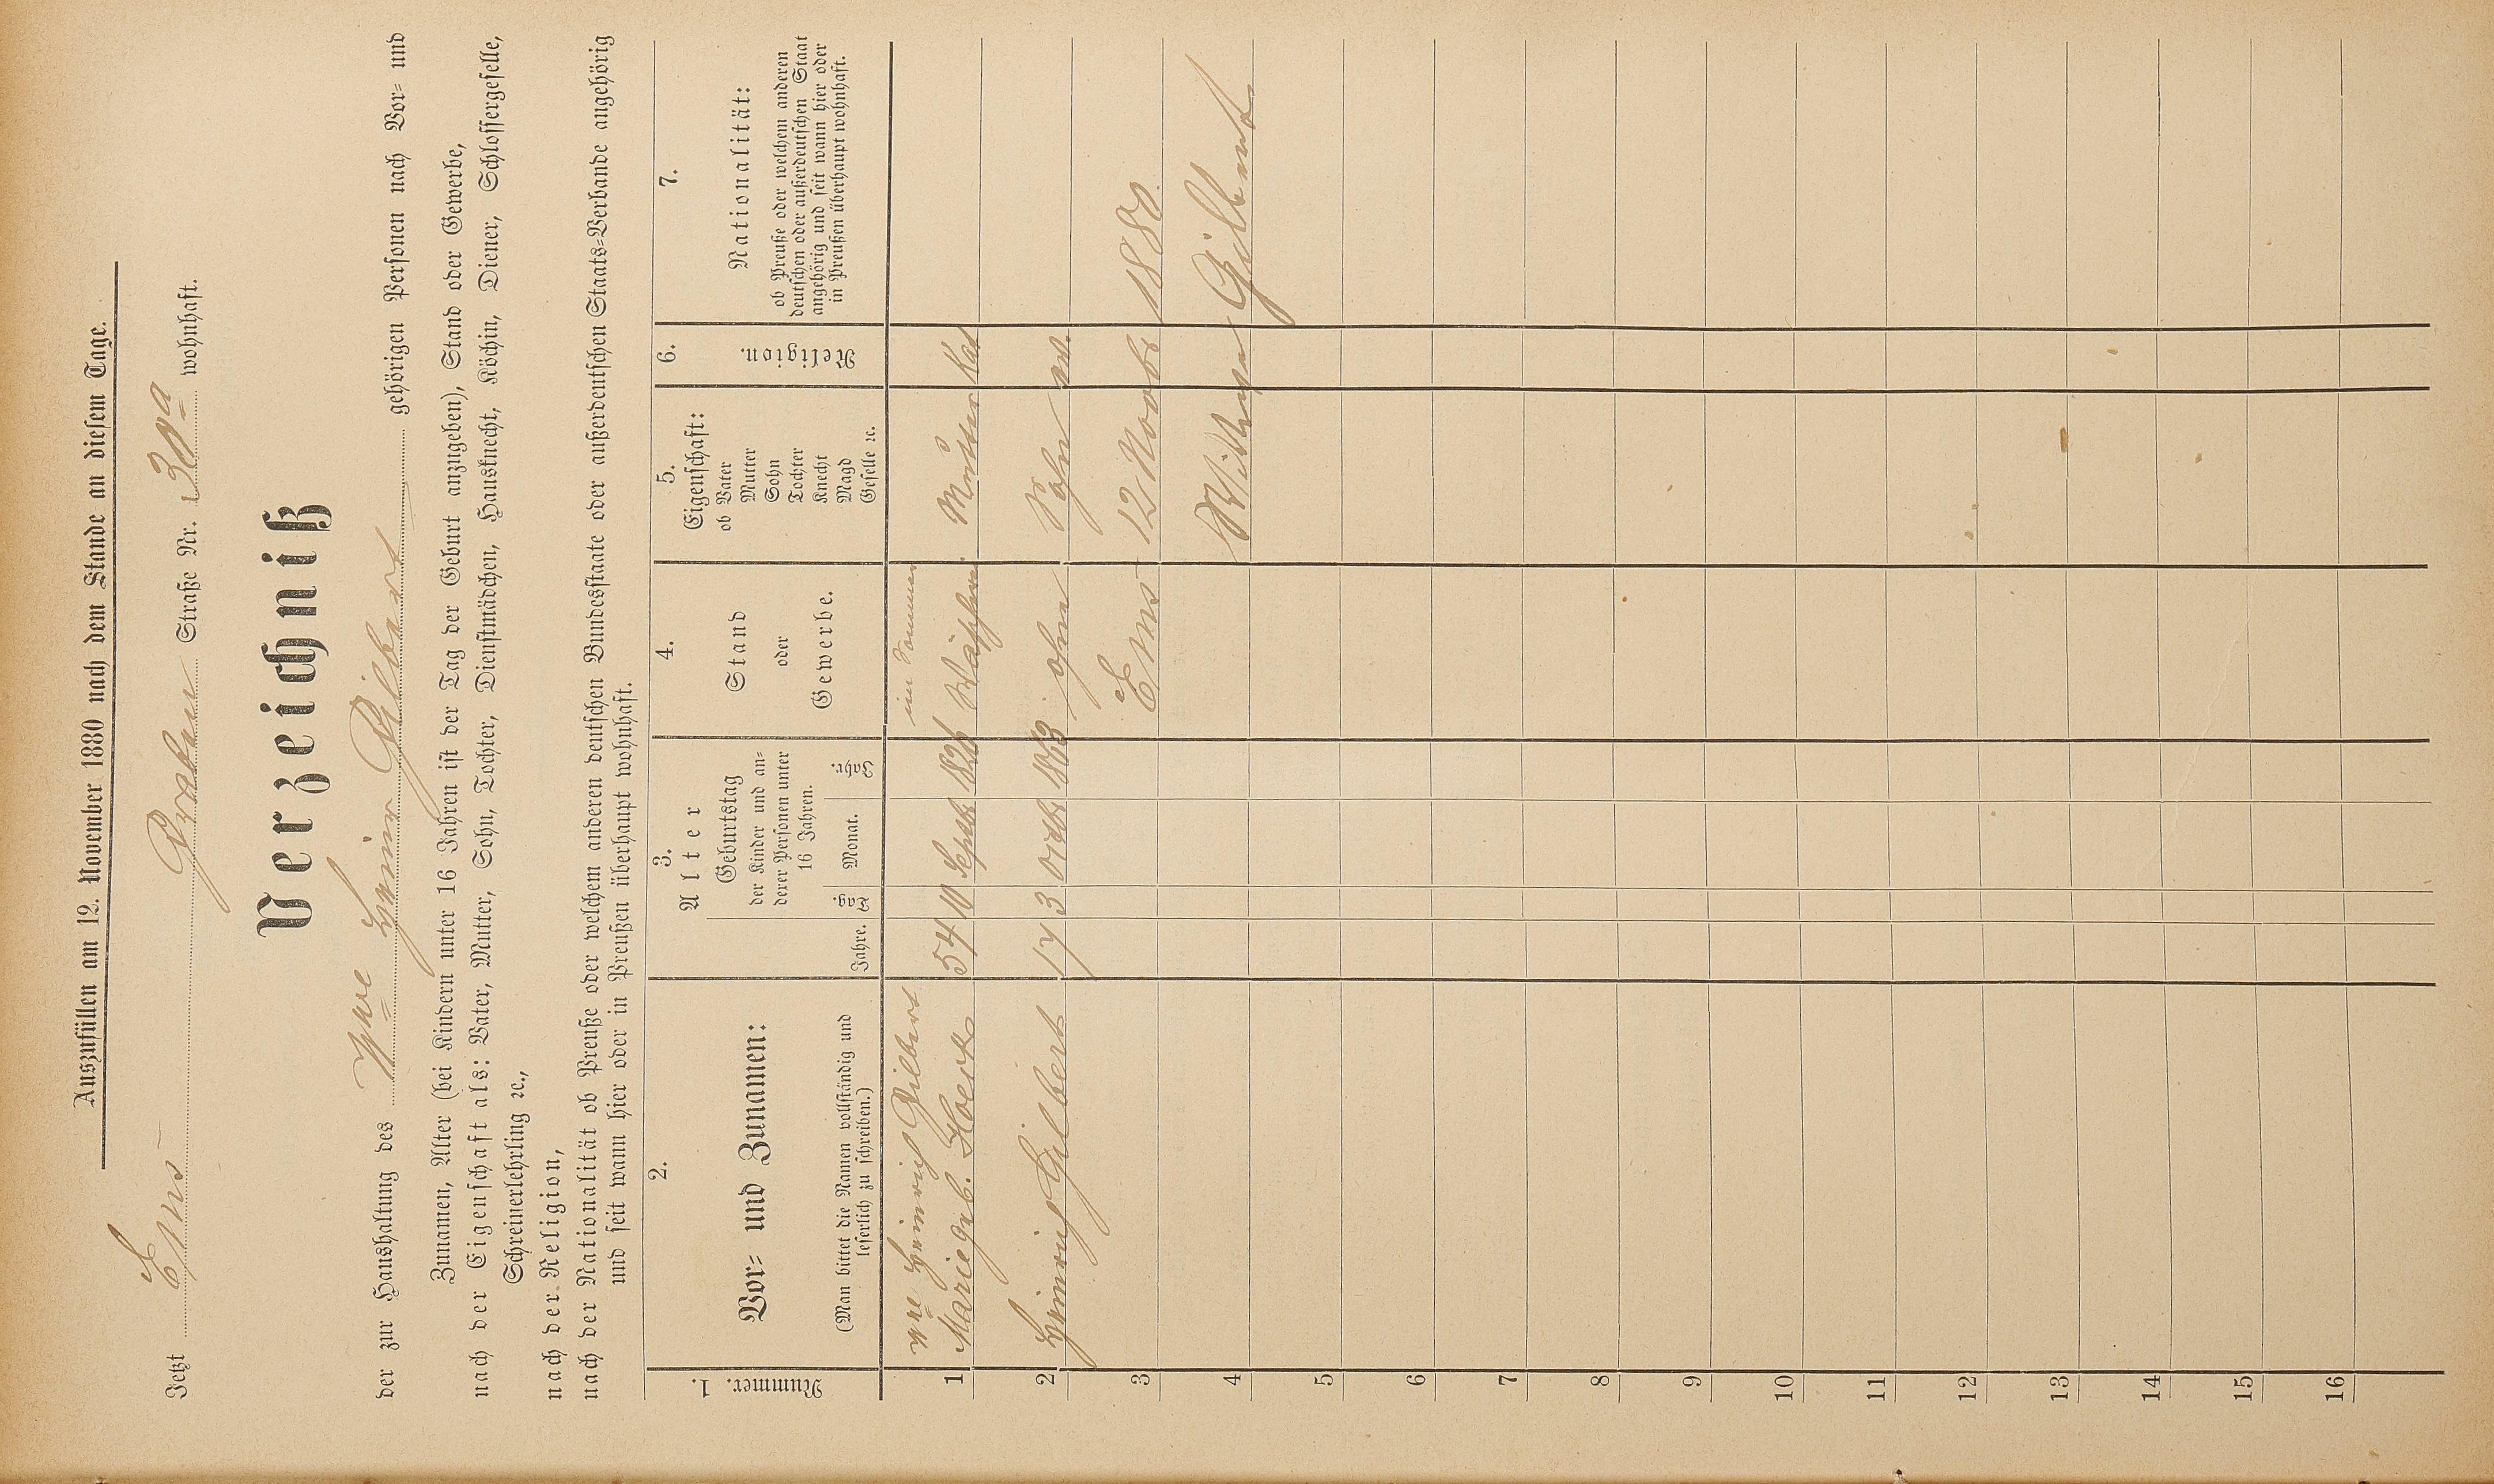 Auszufüllen am 12. November 1880 nach dem Stande an diesem Tage.
Jetzt Ems Graben Straße Nr. 30a wohnhaft.
Verzeichniß
der zur Haushaltung des Wwe Heinr Gilbert gehörigen Personen nach Vor- und
Zunamen, Alter (bei Kindern unter 16 Jahren ist der Tag der Geburt anzugeben), Stand oder Gewerbe,
nach der Eigenschaft als: Vater, Mutter, Sohn, Tochter, Dienstmädchen, Hausknecht, Köchin, Diener, Schlossergeselle,
Schreinerlehrling ꝛc.,
nach der Religion,
nach der Nationalität ob Preuße oder welchem anderen deutschen Bundesstaate oder außerdeutschen Staats-Verbande angehörig
und seit wann hier oder in Preußen überhaupt wohnhaft.
1.
Nummer.
2.
Vor- und Zunamen:
(Man bittet die Namen vollständig und
leserlich zu schreiben.)
3.
Alter
Jahre.
Geburtstag
der Kinder und an-
derer Personen unter
16 Jahren.
Tag.
Monat.
Jahr.
4.
Stand
oder
Gewerbe.
5.
Eigenschaft:
ob Vater
Mutter
Sohn
Tochter
Knecht
Magd
Geselle ꝛc.
6.
Religion.
7.
Nationalität:
ob Preuße oder welchem anderen
deutschen oder außerdeutschen Staat
angehörig und seit wann hier oder
in Preußen überhaupt wohnhaft.
Wwe Heinrich Gilbert im Sommer
1 Marie geb. 54 10 Septbr 1826 Mutter Kat
2 Heinrich Gilbert 17 3 Octbr 1863 ohne Sohn
3 Ems 12 Novbr 1880.
4 Wittwe Gilbert
5
6
7
8
9
10
11
12
13
14
15
16